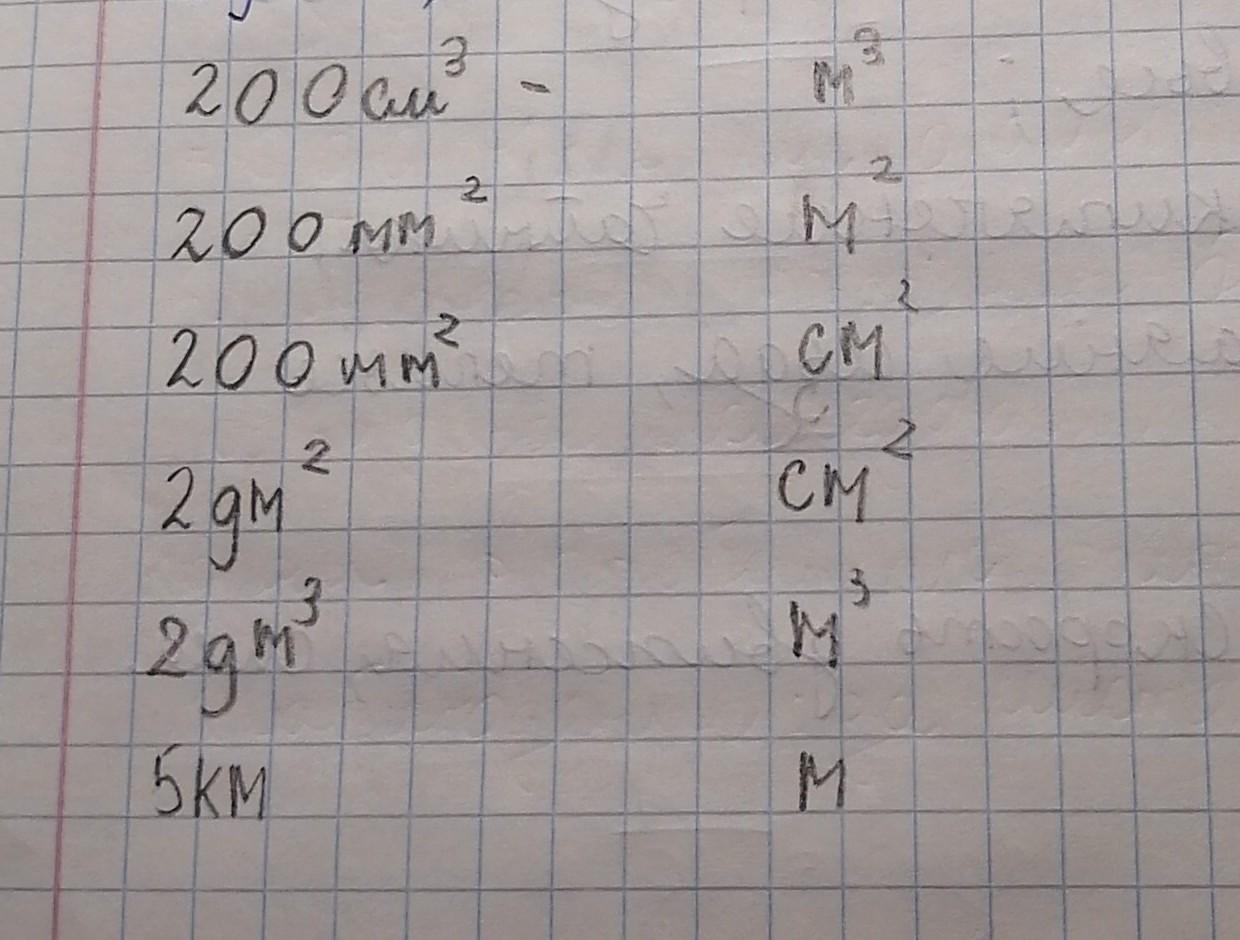 200 см³ - м³
200 мм² м²
200 мм² см²
2 дм² см²
2 дм³ м³
5 км м